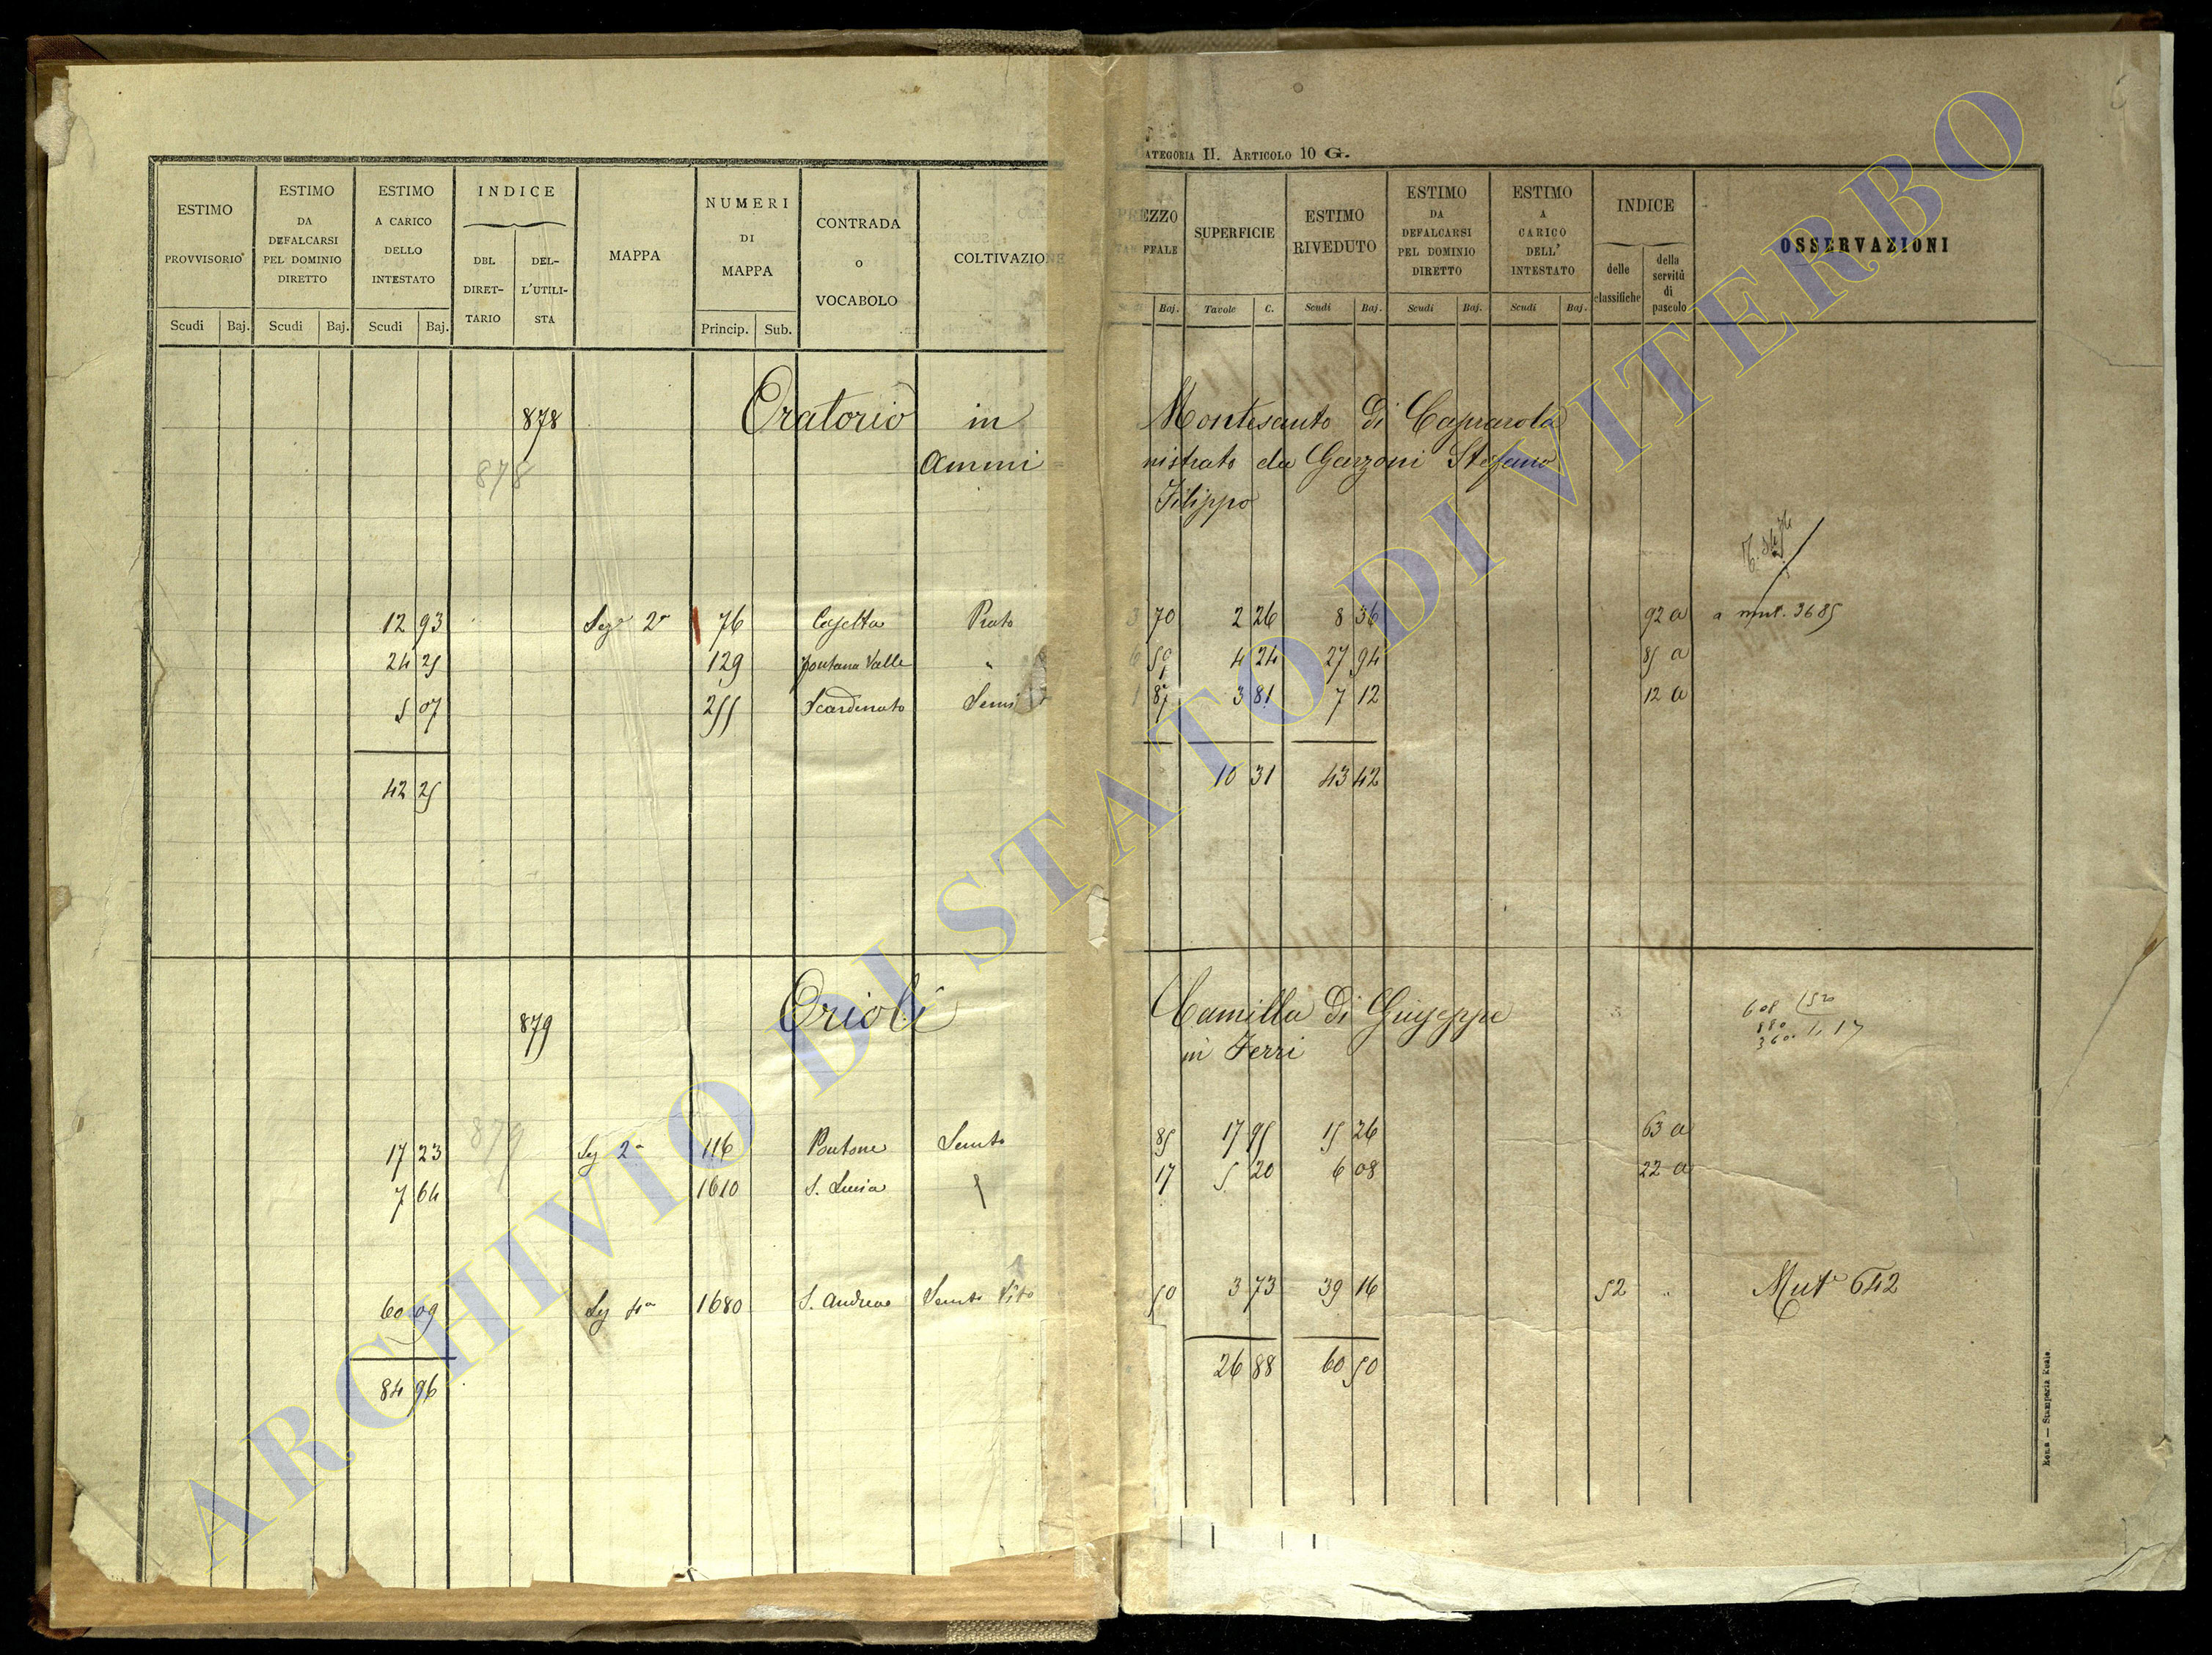 ATEGORIA II. ARTICOLO 10 G.
ESTIMO PROVVISORIO Scudi Baj.
ESTIMO DA DEFALCARSI PEL DOMINIO DIRETTO Scudi Baj.
ESTIMO A CARICO DELLO INTESTATO Scudi Baj.
INDICE DEL DIRET- TARIO DEL- L'UTILI- STA
MAPPA
NUMERI DI MAPPA Princip. Sub.
CONTRADA o VOCABOLO
COLTIVAZIONE
PREZZO FFALE Baj.
SUPERFICIE Tavole C.
ESTIMO RIVEDUTO Scudi Baj.
ESTIMO DA DEFALCARSI PEL DOMINIO DIRETTO Scudi Baj.
ESTIMO A CARICO DELL' INTESTATO Scudi Baj.
INDICE delle classifiche della servitù di pascolo
OSSERVAZIONI
878 Oratorio in Montesanto di Caprarola
878 Ammi nistrato da Garzoni Stefano
Filippo
12 93 Sez. 2a 76 Casetta Prato 3 70 2 26 8 36 92 a a mut. 3685
24 25 129 fontana Valle " 6 59 4 24 27 94 85 a
5 07 255 Scardenato Semi 1 87 3 81 7 12 12 a
42 25 10 31 43 42
879 Orioli Camilla di Giuseppe
in Ferri
608 1520
880
360
1. 17
879
17 23 Sez 2a 116 Pontone Semto 85 17 95 15 26 63 a
7 64 1610 S. Lucia 17 5 20 6 08 22 a
60 09 Sez 4a 1680 S. Andrea Semto Vito 50 3 73 39 16 52 " Muta 642
84 96 26 88 60 50
Roma — Stamperia Reale
ARCHIVIO DI STATO DI VITERBO